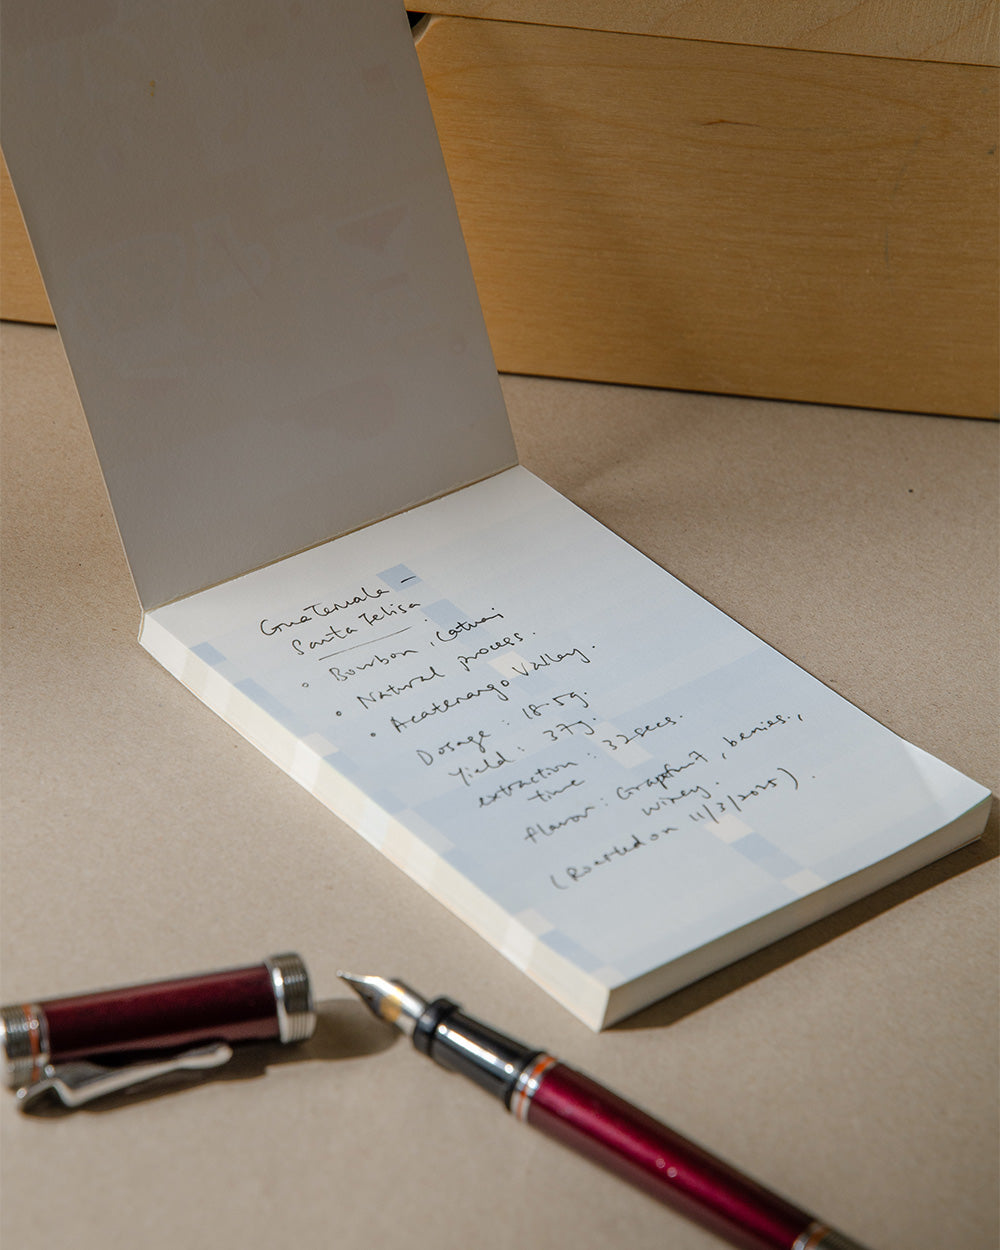 Guatemala –
Santa Felisa
• Bourbon, Catuai
• Natural process.
• Acatenango Valley.
Dosage : 18.5g.
Yield : 37g.
extraction : 32secs.
time
flavor : Grapefruit, berries,
winey.
(Roasted on 11/3/2025).